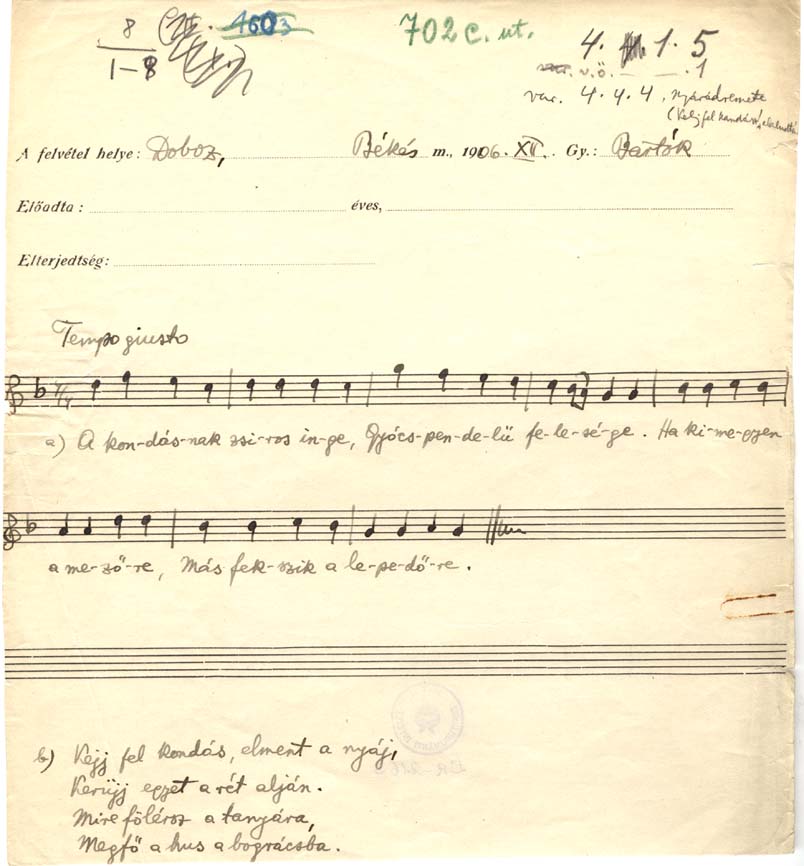 8
1-8
1603
702 c. ut.
4. 1. 5
v. ö. — — . 1
var. 4. 4. 4, Nyárádremete
(Kelj fel kondás!
A felvétel helye: Doboz, Békés m., 1906. XII. Gy.: Bartók
Előadta: éves,
Elterjedtség:
Tempo giusto
4/4
a) A kon-dás-nak zsi-ros in-ge, Gyócs-pen-de-lü fe-le-sé-ge. Ha ki-me-gyen
a me-ző-re, Más fek-szik a le-pe-dő-re.
b) Kejj fel kondás, elment a nyáj,
Kerüjj egyet a rét alján.
Mire fölérsz a tanyára,
Megfő a hus a bográcsba.